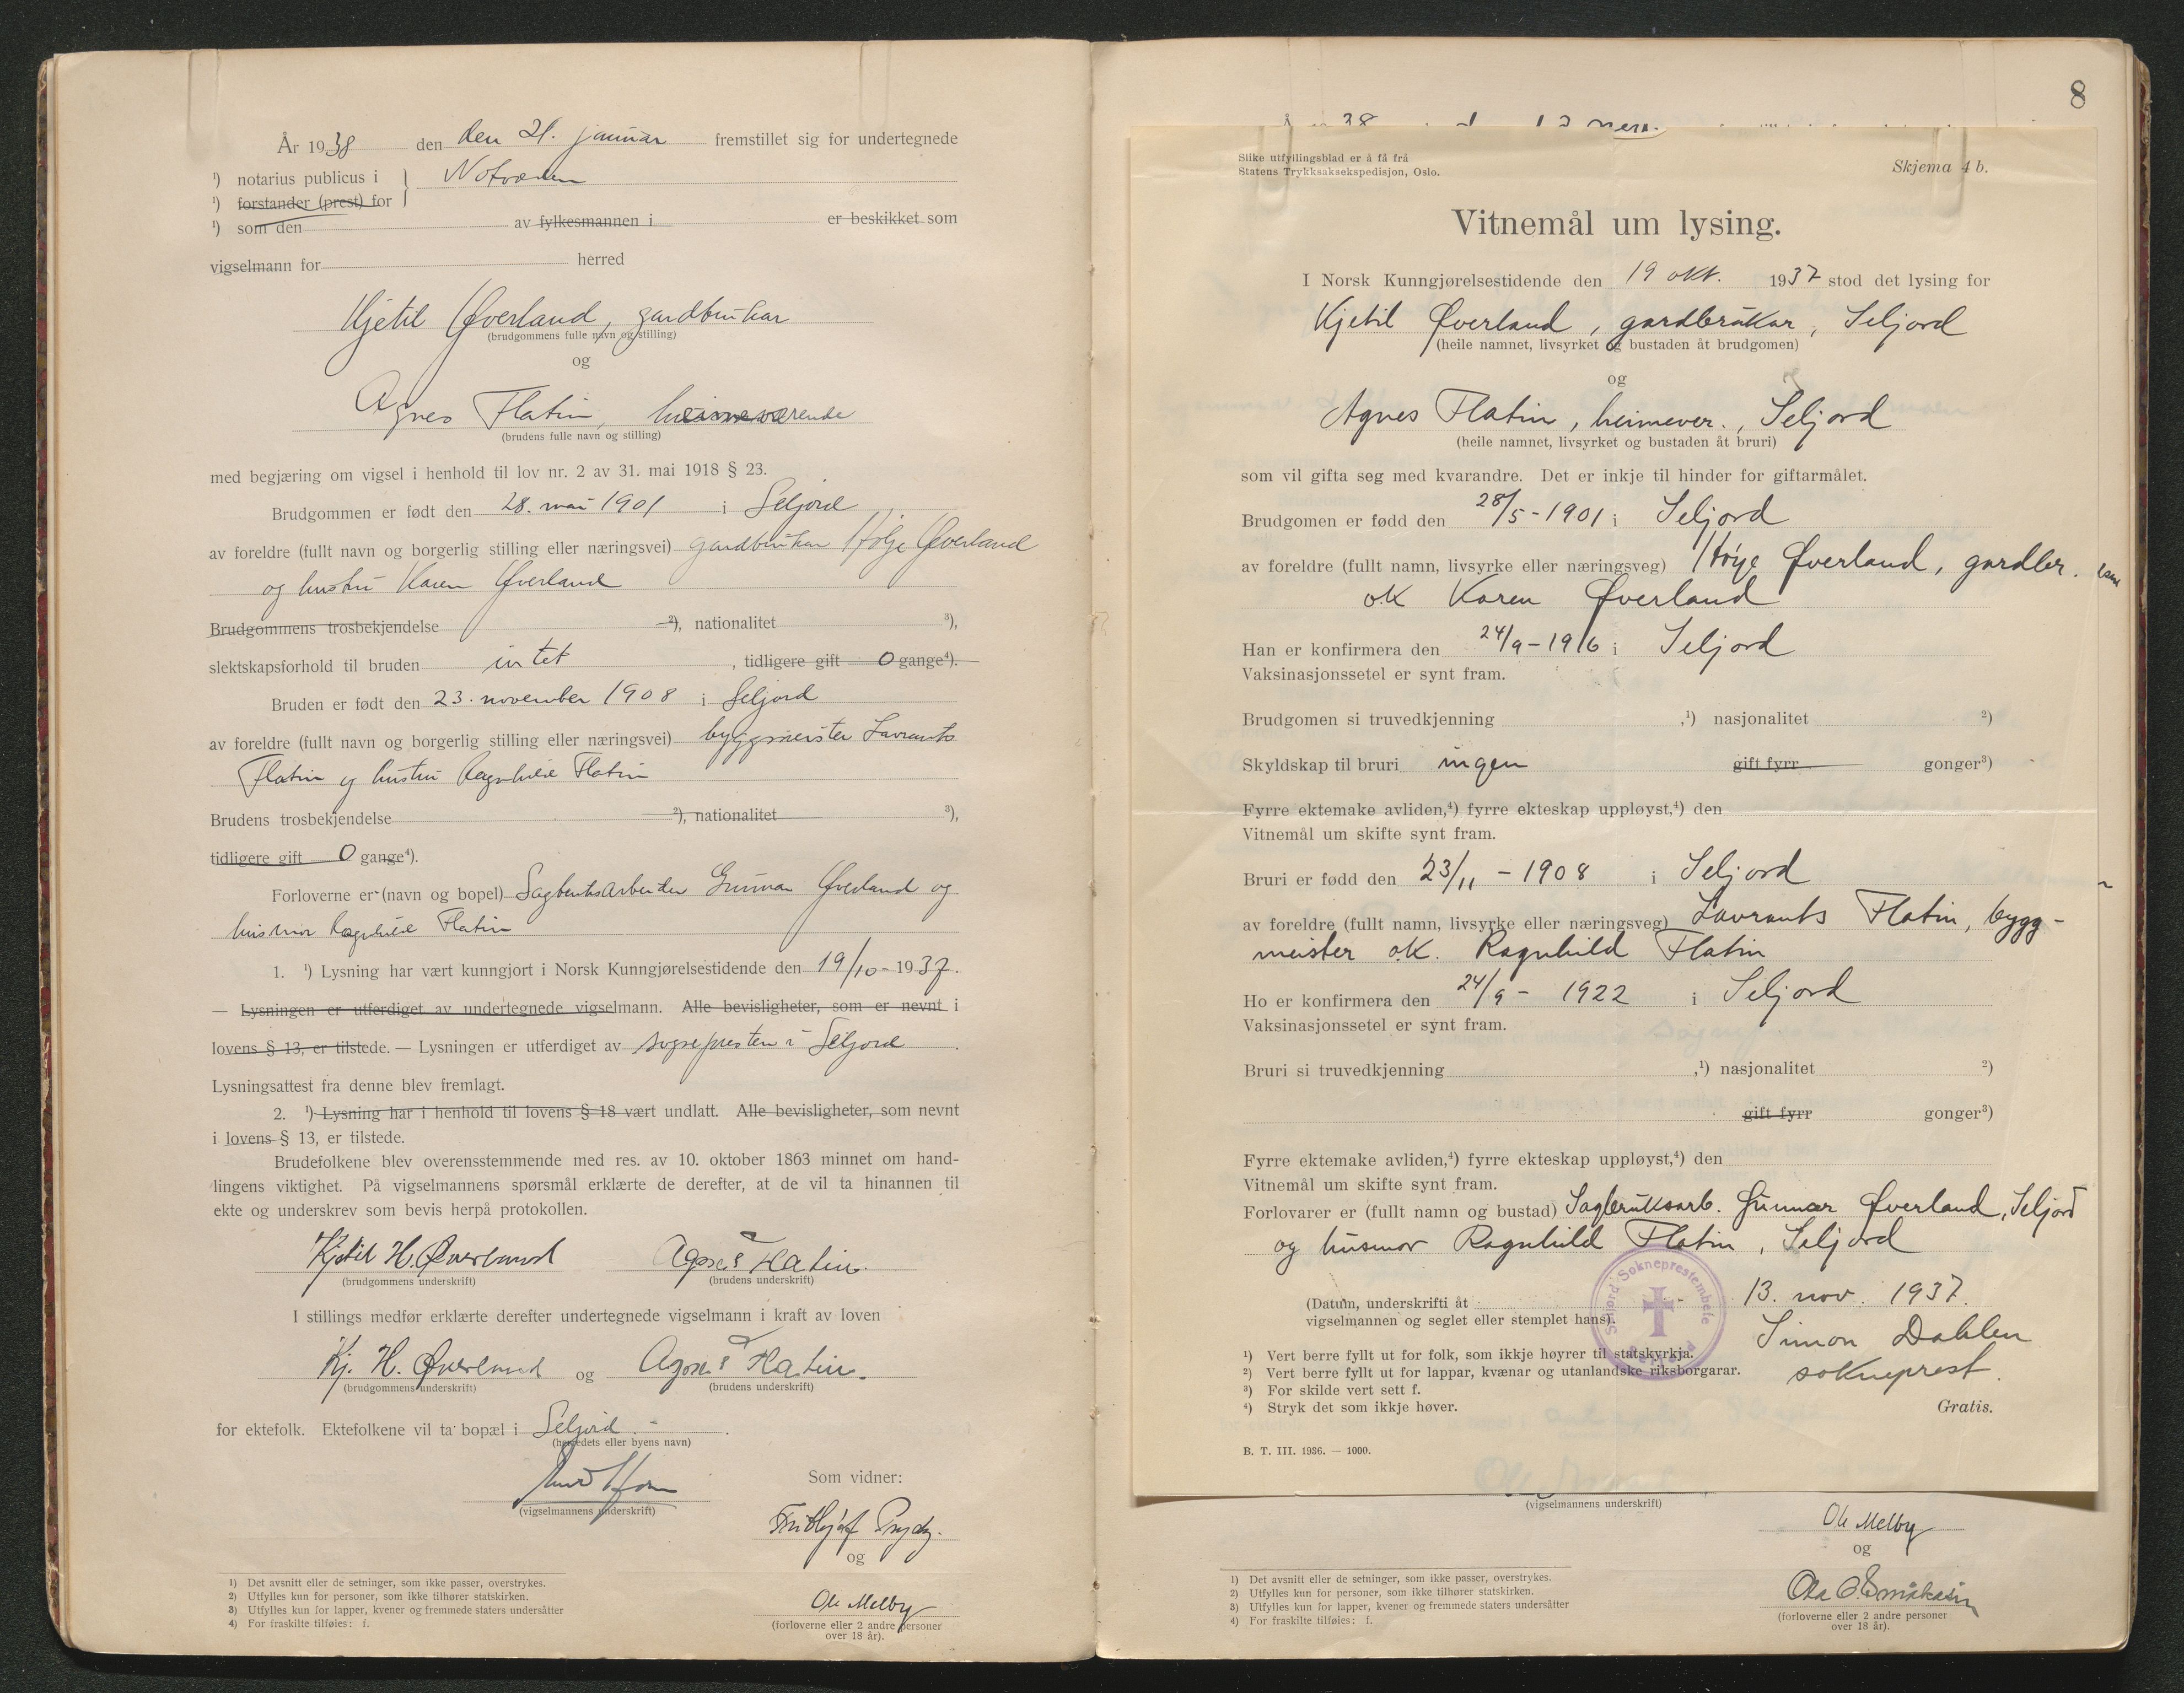 År 1938 den den 21. januar fremstillet sig for undertegnede
¹) notarius publicus i
¹) forstander (prest) for
¹) som den av fylkesmannen i er beskikket som
vigselmann for herred
Kjetil Øverland, gardbrukar
(brudgommens fulle navn og stilling)
og
Agnes Flatin, heimeværende
(brudens fulle navn og stilling)
med begjæring om vigsel i henhold til lov nr. 2 av 31. mai 1918 § 23.
Brudgommen er født den 28. mai 1901 i Seljord
av foreldre (fullt navn og borgerlig stilling eller næringsvei) gardbrukar Hølje Øverland
og hustru Karen Øverland
Brudgommens trosbekjendelse ²), nationalitet ³),
slektskapsforhold til bruden intet, tidligere gift 0 gange⁴).
Bruden er født den 23. november 1908 i Seljord
av foreldre (fullt navn og borgerlig stilling eller næringsvei) byggmeister Lavrants
Flatin og hustru Ragnhild Flatin
Brudens trosbekjendelse ²), nationalitet ³),
tidligere gift 0 gange⁴).
Forloverne er (navn og bopel) Sagbruksarbeider Gunnar Øverland og
husmor Ragnhild Flatin
1. ¹) Lysning har vært kunngjort i Norsk Kunngjørelsestidende den 19/10-1937.
— Lysningen er utferdiget av undertegnede vigselmann. Alle bevisligheter, som er nevnt i
lovens § 13, er tilstede. — Lysningen er utferdiget av sognepresten i Seljord.
Lysningsattest fra denne blev fremlagt.
2. ¹) Lysning har i henhold til lovens § 18 vært undlatt. Alle bevisligheter, som nevnt
i lovens § 13, er tilstede.
Brudefolkene blev overensstemmende med res. av 10. oktober 1863 minnet om hand-
lingens viktighet. På vigselmannens spørsmål erklærte de derefter, at de vil ta hinannen til
ekte og underskrev som bevis herpå protokollen.
Kjetil H. Øverland Agnes Flatin.
(brudgommens underskrift) (brudens underskrift)
I stillings medfør erklærte derefter undertegnede vigselmann i kraft av loven
Kj. H. Øverland og Agnes Flatin.
(brudgommens underskrift) (brudens underskrift)
for ektefolk. Ektefolkene vil ta bopæl i Seljord.
(herredets eller byens navn)
(vigselmannens underskrift)
Som vidner:
og
Ole Melby
(forloverne eller 2 andre personer
over 18 år).
1) Det avsnitt eller de setninger, som ikke passer, overstrykes.
2) Utfylles kun for personer, som ikke tilhører statskirken.
3) Utfylles kun for lapper, kvener og fremmede staters undersåtter
4) For fraskilte tilføies: f.
8
Slike utfyllingsblad er å få frå
Statens Trykksaksekspedisjon, Oslo.
Skjema 4 b.
Vitnemål um lysing.
I Norsk Kunngjørelsestidende den 19 okt. 1937 stod det lysing for
Kjetil Øverland, gardbrukar, Seljord
(heile namnet, livsyrket og bustaden åt brudgomen)
og
Agnes Flatin, heimever., Seljord
(heile namnet, livsyrket og bustaden åt bruri)
som vil gifta seg med kvarandre. Det er inkje til hinder for giftarmålet.
Brudgomen er fødd den 28/5-1901 i Seljord
av foreldre (fullt namn, livsyrke eller næringsveg) Høye Øverland, gardbr.
o.k Karen Øverland
Han er konfirmera den 24/9-1916 i Seljord
Vaksinasjonssetel er synt fram.
Brudgomen si truvedkjenning ,¹) nasjonalitet ²)
Skyldskap til bruri ingen gift fyrr gonger³)
Fyrre ektemake avliden,⁴) fyrre ekteskap uppløyst,⁴) den
Vitnemål um skifte synt fram.
Bruri er fødd den 23/11 - 1908 i Seljord
av foreldre (fullt namn, livsyrke eller næringsveg) Lavrants Flatin, bygg-
meister o.k. Ragnhild Flatin
Ho er konfirmera den 24/9 - 1922 i Seljord
Vaksinasjonssetel er synt fram.
Bruri si truvedkjenning ,¹) nasjonalitet ²)
gift fyrr gonger³)
Fyrre ektemake avliden,⁴) fyrre ekteskap uppløyst,⁴) den
Vitnemål um skifte synt fram.
Forlovarer er (fullt namn og bustad) Sagbruksarb. Gunnar Øverland, Seljord
og husmor Ragnhild Flatin, Seljord
Seljord Sokneprestembete
Seljord
(Datum, underskrifti åt
vigselmannen og seglet eller stemplet hans).
13. nov. 1937.
Simon Dahlen
sokneprest.
¹) Vert berre fyllt ut for folk, som ikkje høyrer til statskyrkja.
²) Vert berre fyllt ut for lappar, kvænar og utanlandske riksborgarar.
³) For skilde vert sett f.
⁴) Stryk det som ikkje høver.
Gratis.
B. T. III. 1936. — 1000.
(vigselmannens underskrift)
Ole Melby
og
(forloverne eller 2 andre personer
over 18 år).
1) Det avsnitt eller de setninger, som ikke passer, overstrykes.
2) Utfylles kun for personer, som ikke tilhører statskirken.
3) Utfylles kun for lapper, kvener og fremmede staters undersåtter
4) For fraskilte tilføies: f.